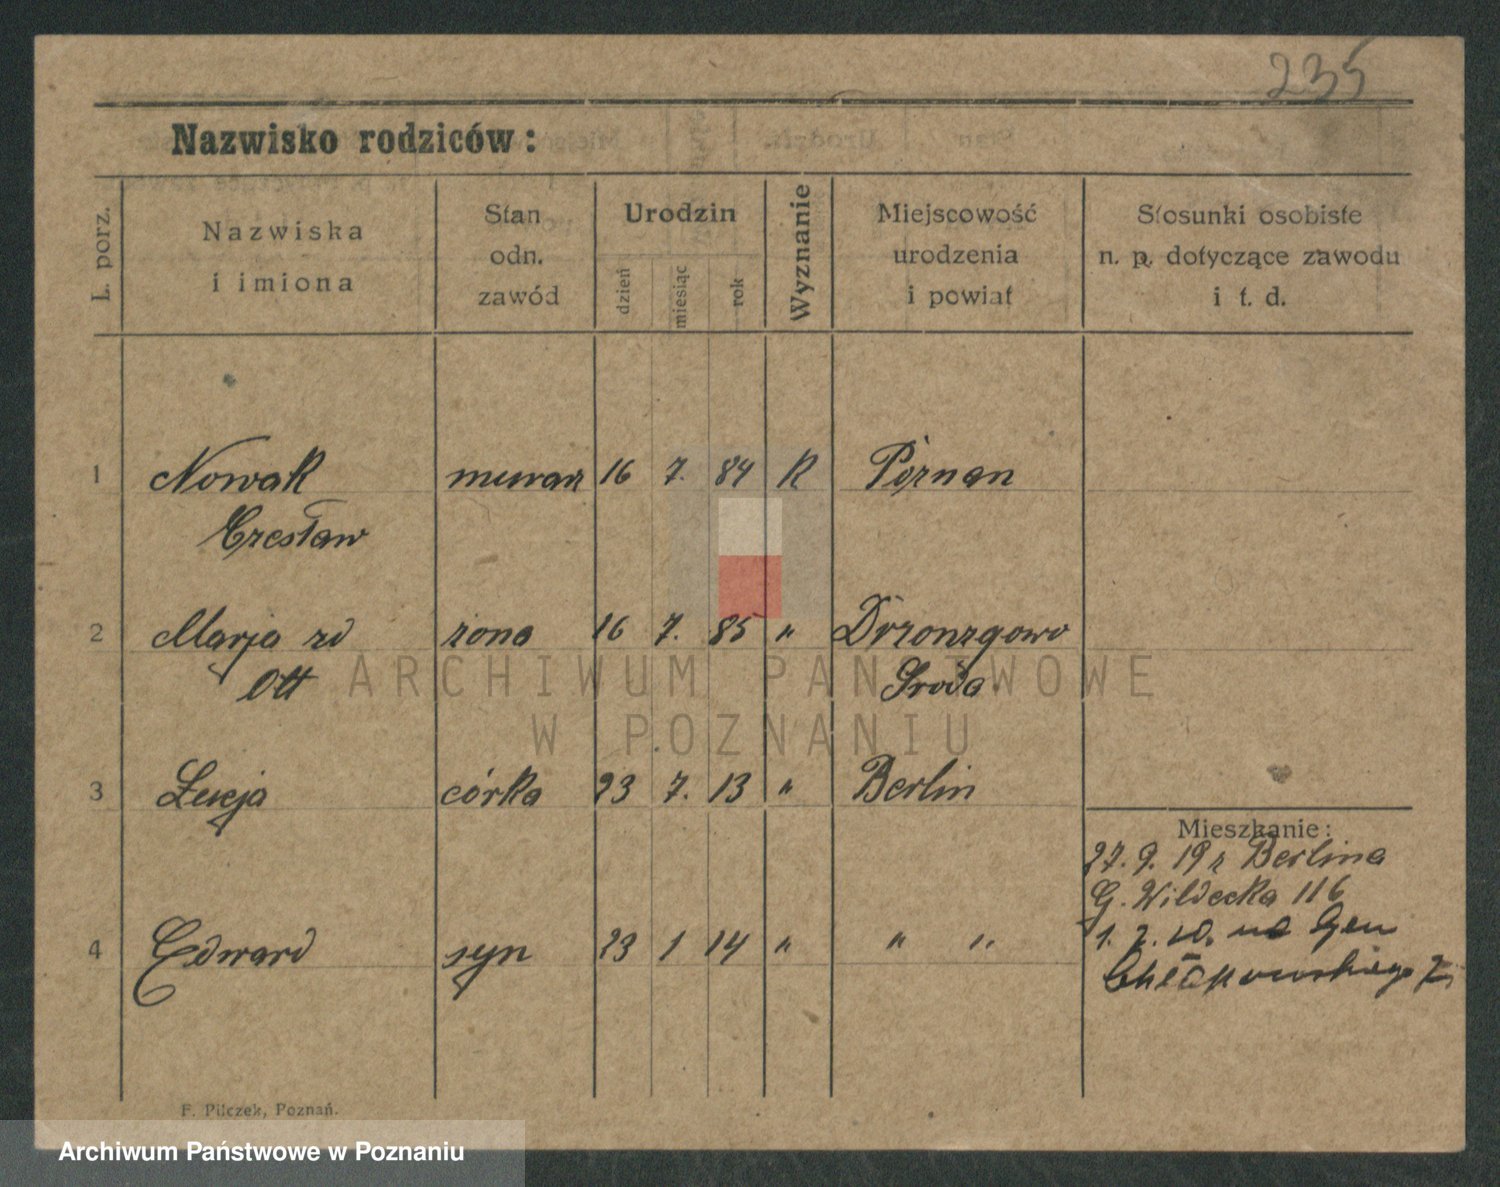 235
Nazwisko rodziców:
L. porz.
Nazwiska
i imiona
Stan
odn.
zawód
Urodzin
dzień
miesiąc
rok
Wyznanie
Miejscowość
urodzenia
i powiat
Stosunki osobiste
n. p. dotyczące zawodu
i t. d.
1 Nowak murarz 16 7. 84 R Poznan
Czesław
2 Marja zd żona 16 7. 85 " 
Ott Środa
ARCHIWUM PAŃSTWOWE
W POZNANIU
3 Łucja córka 23 7. 13 " Berlin
Mieszkanie:
27. 9. 19 r Berlina
G. Wildecka 116
4 Edward syn 23 1 14 " " "
1. 7. 20. na Gen
Chłapowskiego
F. Pilczek, Poznań.
Archiwum Państwowe w Poznaniu